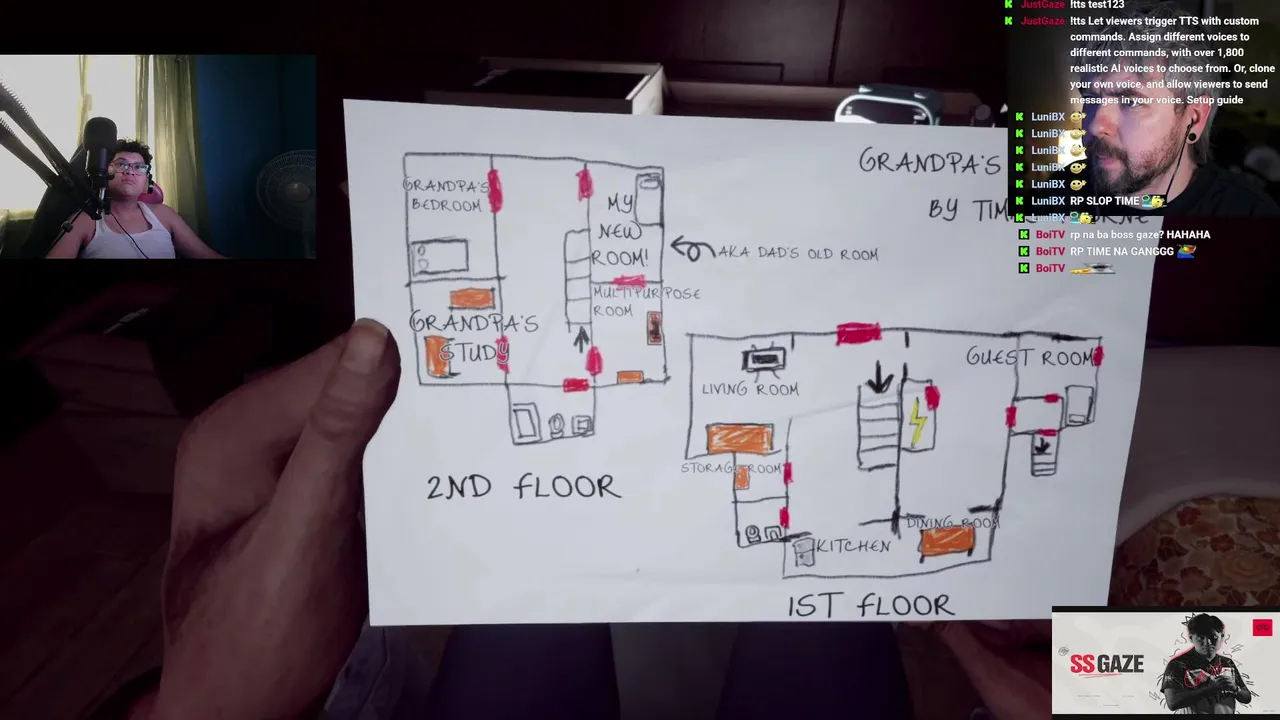 JustGaze !tts test123
JustGaze !tts Let viewers trigger TTS with custom
commands. Assign different voices to
different commands, with over 1,800
realistic AI voices to choose from. Or, clone
your own voice, and allow viewers to send
messages in your voice. Setup guide
LuniBX
LuniBX
LuniBX
LuniBX
LuniBX
LuniBX RP SLOP TIME
LuniBX
BoiTV rp na ba boss gaze? HAHAHA
BoiTV RP TIME NA GANGGG
BoiTV
GRANDPA'S
BY
GRANDPA'S
BEDROOM
MY
NEW
ROOM!
AKA DAD'S OLD ROOM
MULTIPURPOSE
ROOM
GRANDPA'S
STUDY
2ND FLOOR
LIVING ROOM
GUEST ROOM
STORAGE ROOM
DINING ROOM
KITCHEN
1ST FLOOR
SSGAZE